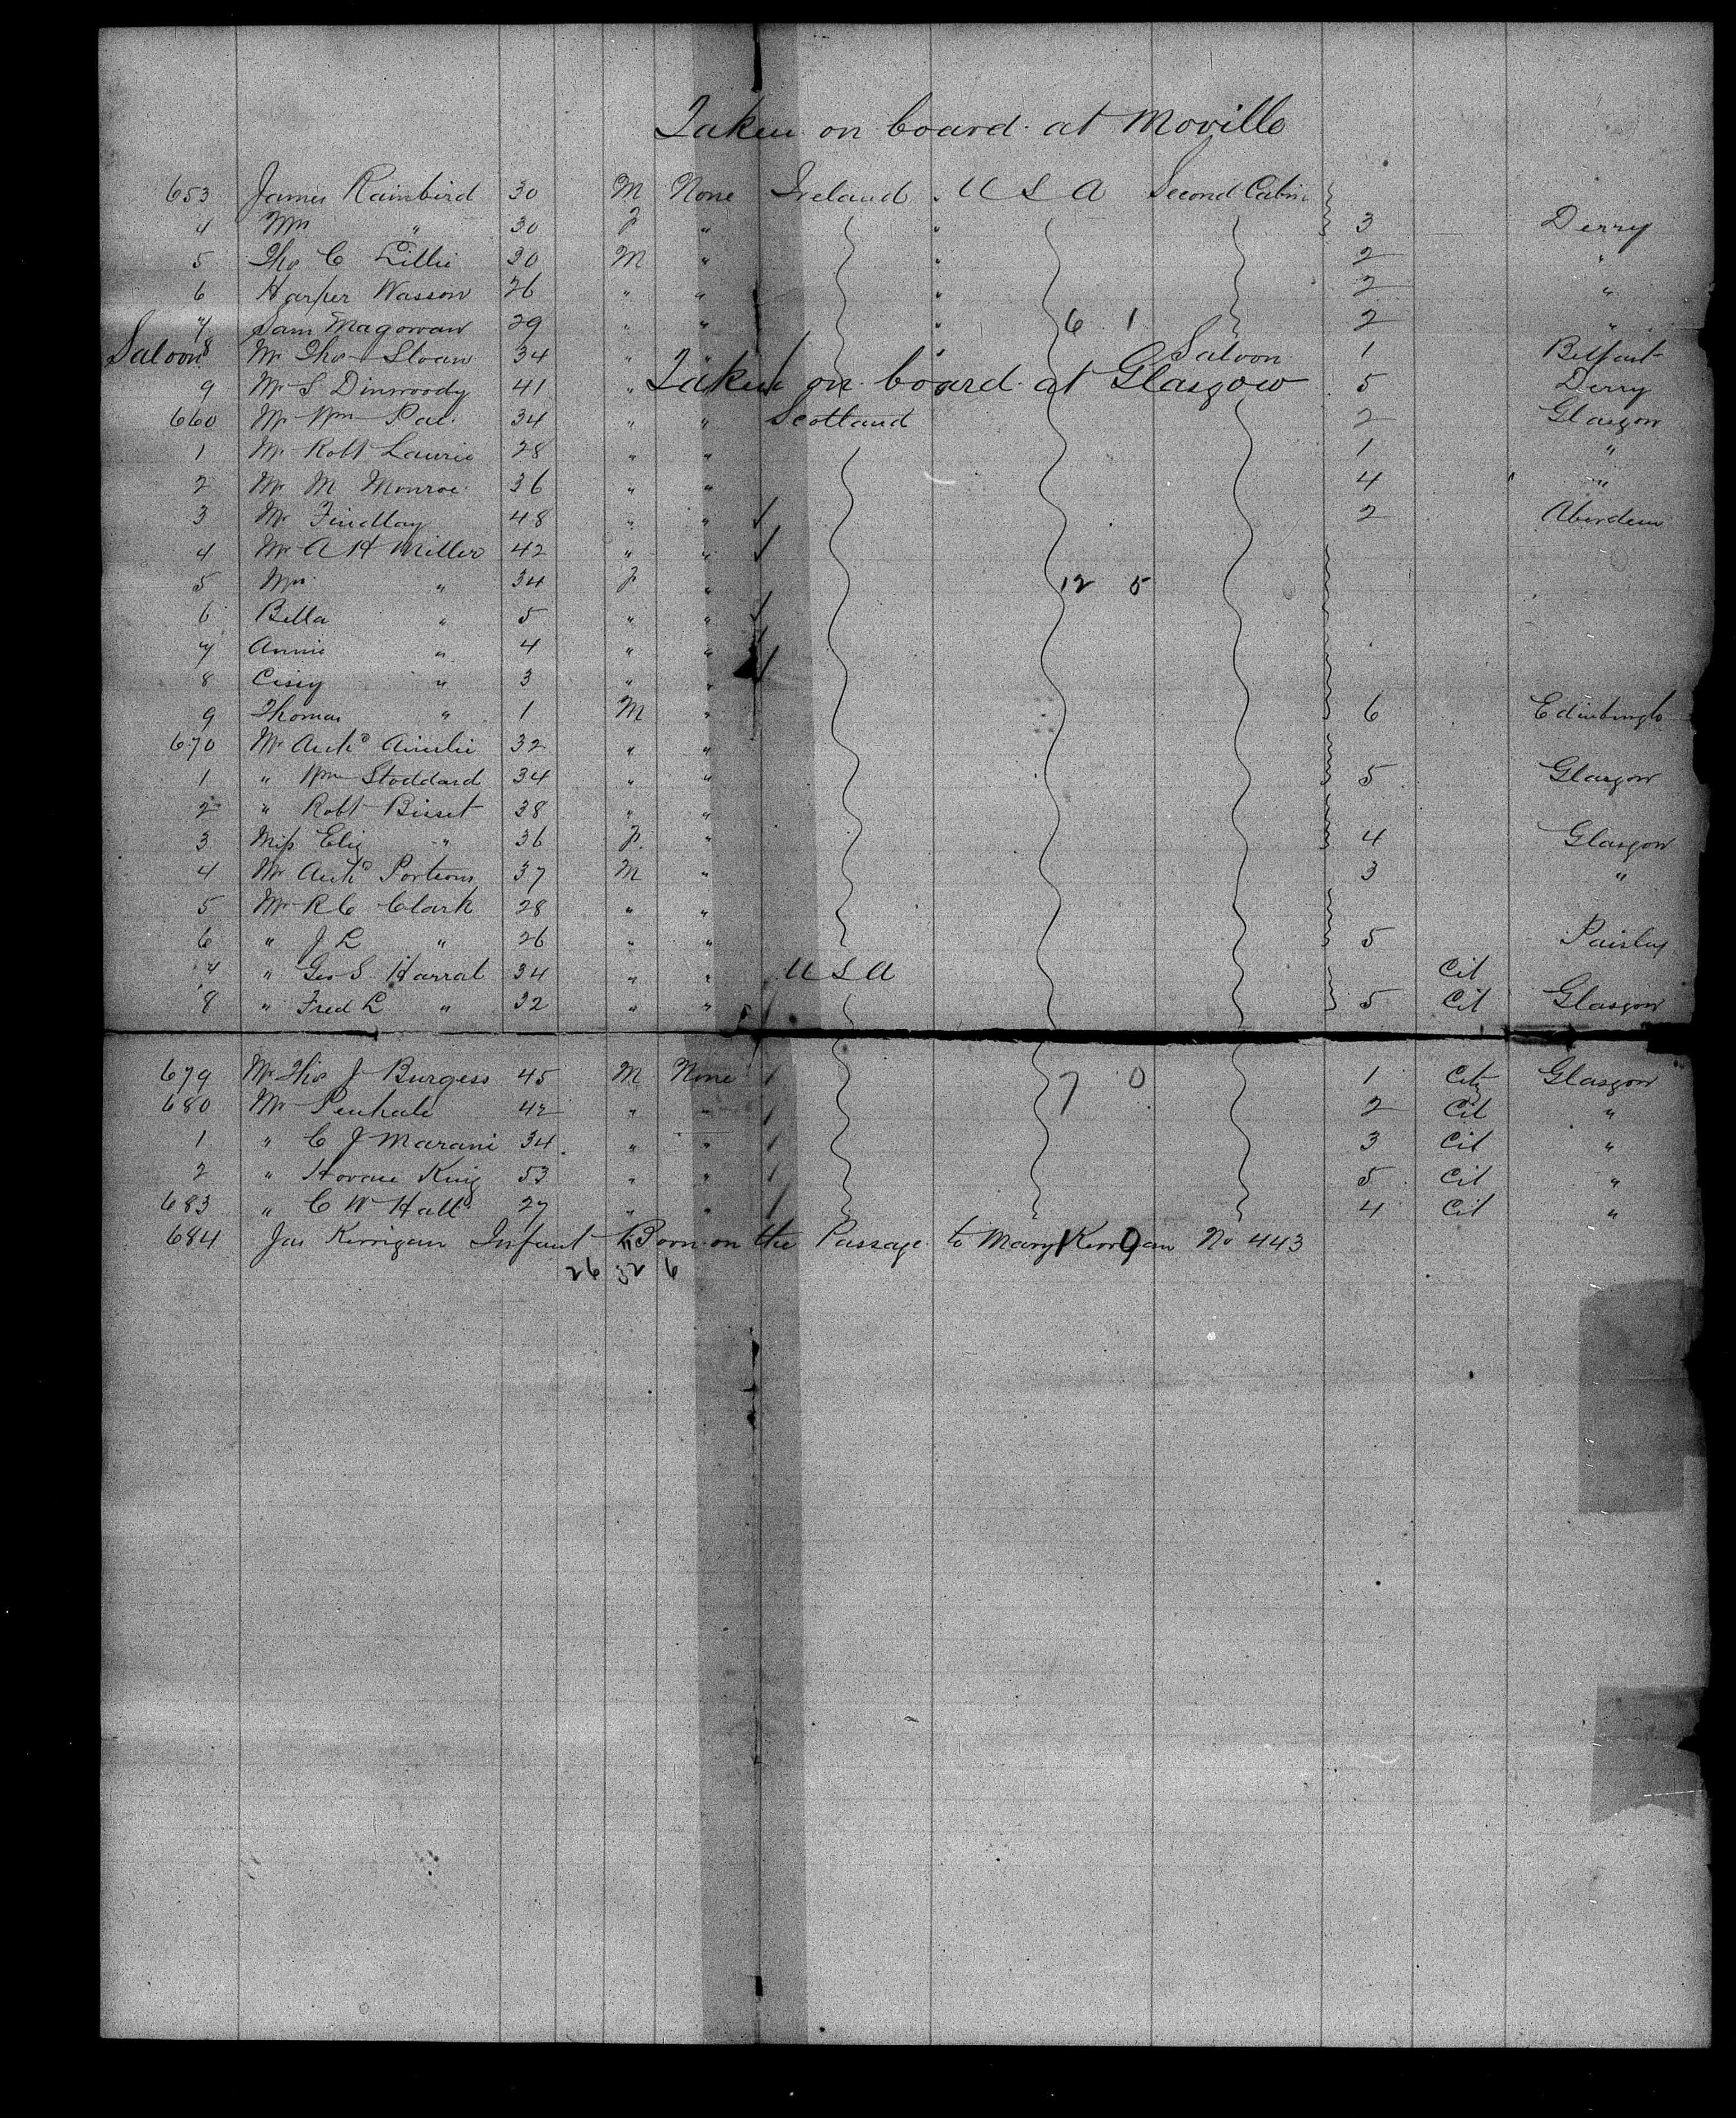 Taken on board at Moville
653 James Rainbird 30 M None Ireland " U S A Second Cabin
4 Mrs " 30 F " " 3 Derry
5 Thos C Lillie 30 M " " 2 "
6 Harper Wasson 26 " " " 2 "
7 Sam Magowan 29 " " " 6 1 2 "
Saloon 8 Mr Thos Sloan 34 " " " Saloon 1 Belfast
Taken on board at Glasgow
9 Mr S Dinwoody 41 " 5 Derry
660 Mr Wm 34 " " Scotland 2 Glasgow
1 Mr Robt Laurie 28 " " 1 "
2 Mr M Monroe 36 " " 4 "
3 Mr Findlay 48 " " 2 Aberdeen
4 Mr A H Miller 42 " "
5 Mrs " 34 F " 12 5
6 Bella " 5 " "
7 Annie " 4 " "
8 Cissy " 3 " "
9 Thomas " 1 M " 6 Edinburgh
670 Mr Archd Ainslie 32 " "
1 " Wm Stoddard 34 " " 5 Glasgow
2 " Robt Bisset 38 " "
3 Miss Eliz " 36 F " 4 Glasgow
4 Mr Archd Porteous 37 M " 3 "
5 Mr R C Clark 28 " "
6 " J L " 26 " " 5 Paisley
7 " Geo S Harrat 34 " " U S A Cit
8 " Fred L " 32 " " 5 Cit Glasgow
679 Mr Thos J Burgess 45 M None 7 0 1 Cit Glasgow
680 Mr Penhale 42 " " 2 Cit "
1 " C J Marani 34 " " 3 Cit "
2 " Horace King 53 " " 5 Cit "
683 " C W Hall 27 " " 4 Cit "
684 Jas Kerrigan Infant Born on the Passage to Mary Kerrigan No 443
1 0
26 32 6